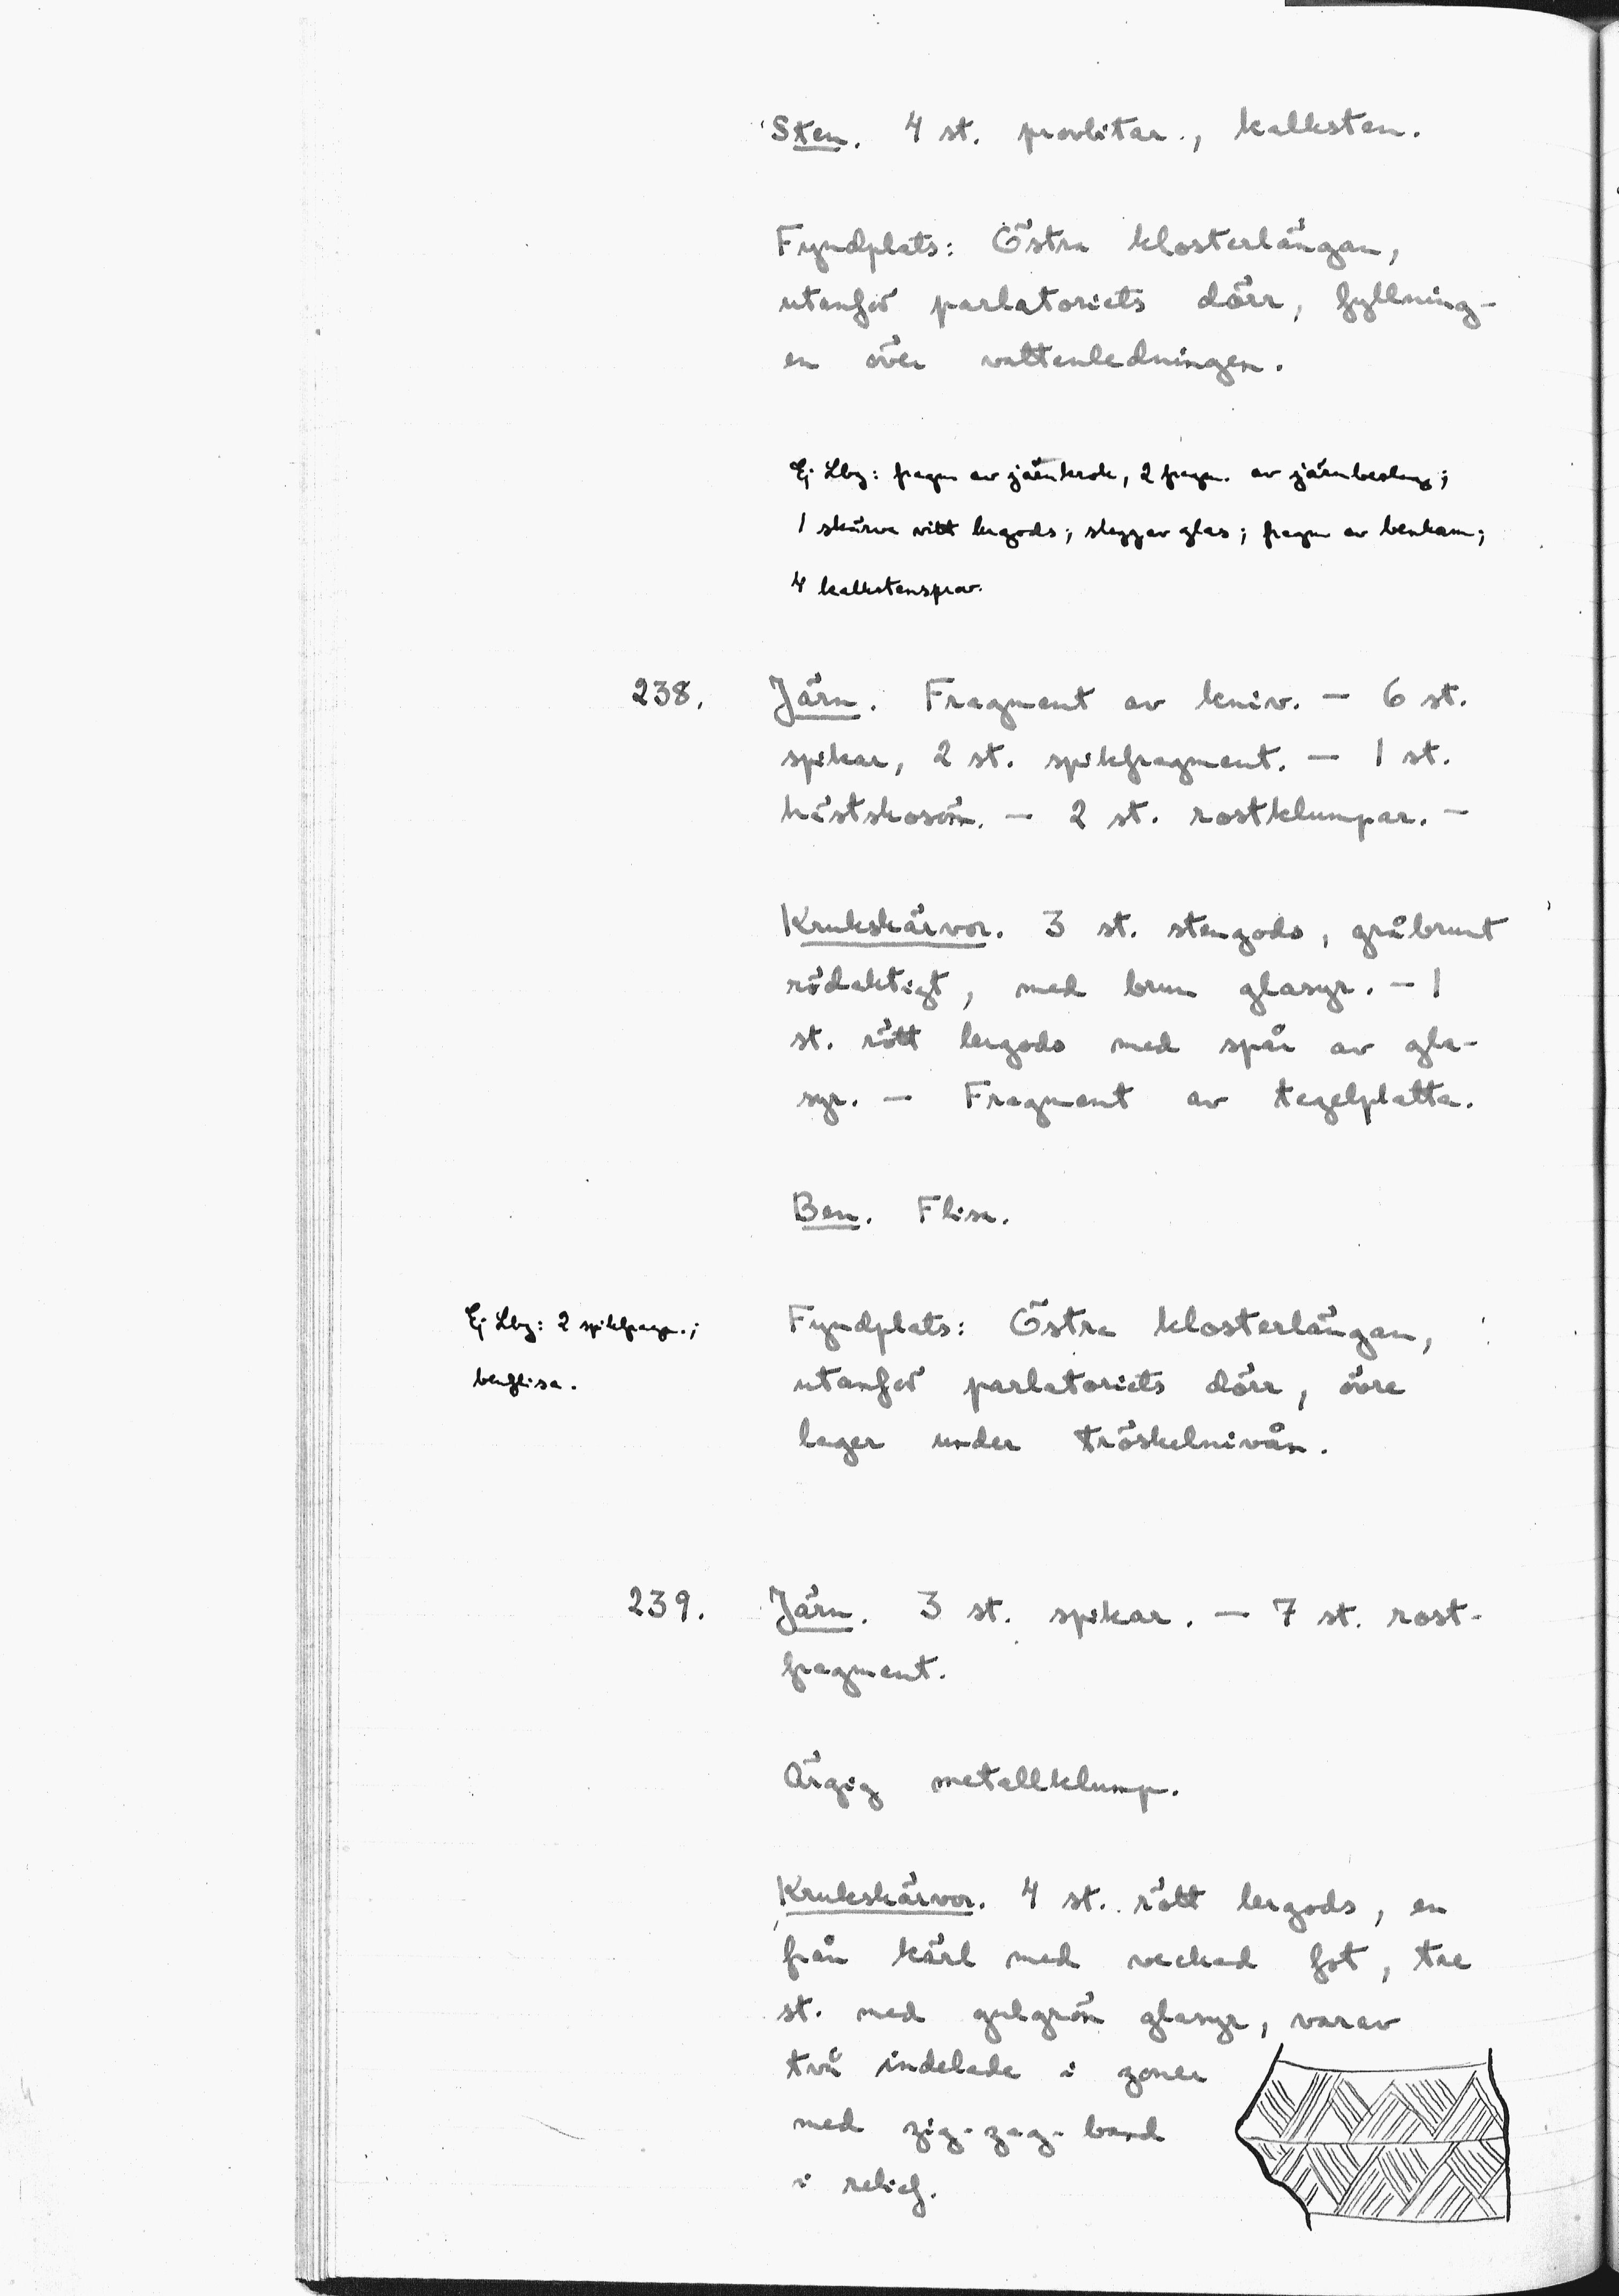 Sten. 4 st. provbitar., kalksten.
Fyndplats: Östra klosterlängan,
utanför parlatoriets dörr, fyllning-
en över vattenledningen.
Ej Lbg: fragm av järnkrok, 2 fragm. av järnbeslag;
1 skärva vitt lergods; slagg av glas; fragm av benkam;
4 kalkstensprov.
238. Järn. Fragment av kniv. — 6 st.
spikar, 2 st. spikfragment. — 1 st.
hästskosöm. — 2 st. rostklumpar. —
Krukskärvor. 3 st. stengods, gråbrunt
rödaktigt, med brun glasyr. — 1
st. rött lergods med spår av gla-
syr. — Fragment av tegelplatta.
Ben. Flisa.
Ej Lbg: 2 spikfragm.;
benflisa.
Fyndplats: Östra klosterlängan,
utanför parlatoriets dörr, övre
lager under tröskelnivån.
239. Järn. 3 st. spikar. — 7 st. rost-
fragment.
Ärgig metallklump.
Krukskärvor. 4 st. rött lergods, en
från kärl med veckad fot, tre
st. med gulgrön glasyr, varav
två indelade i zoner
med zig-zag-band
i relief.